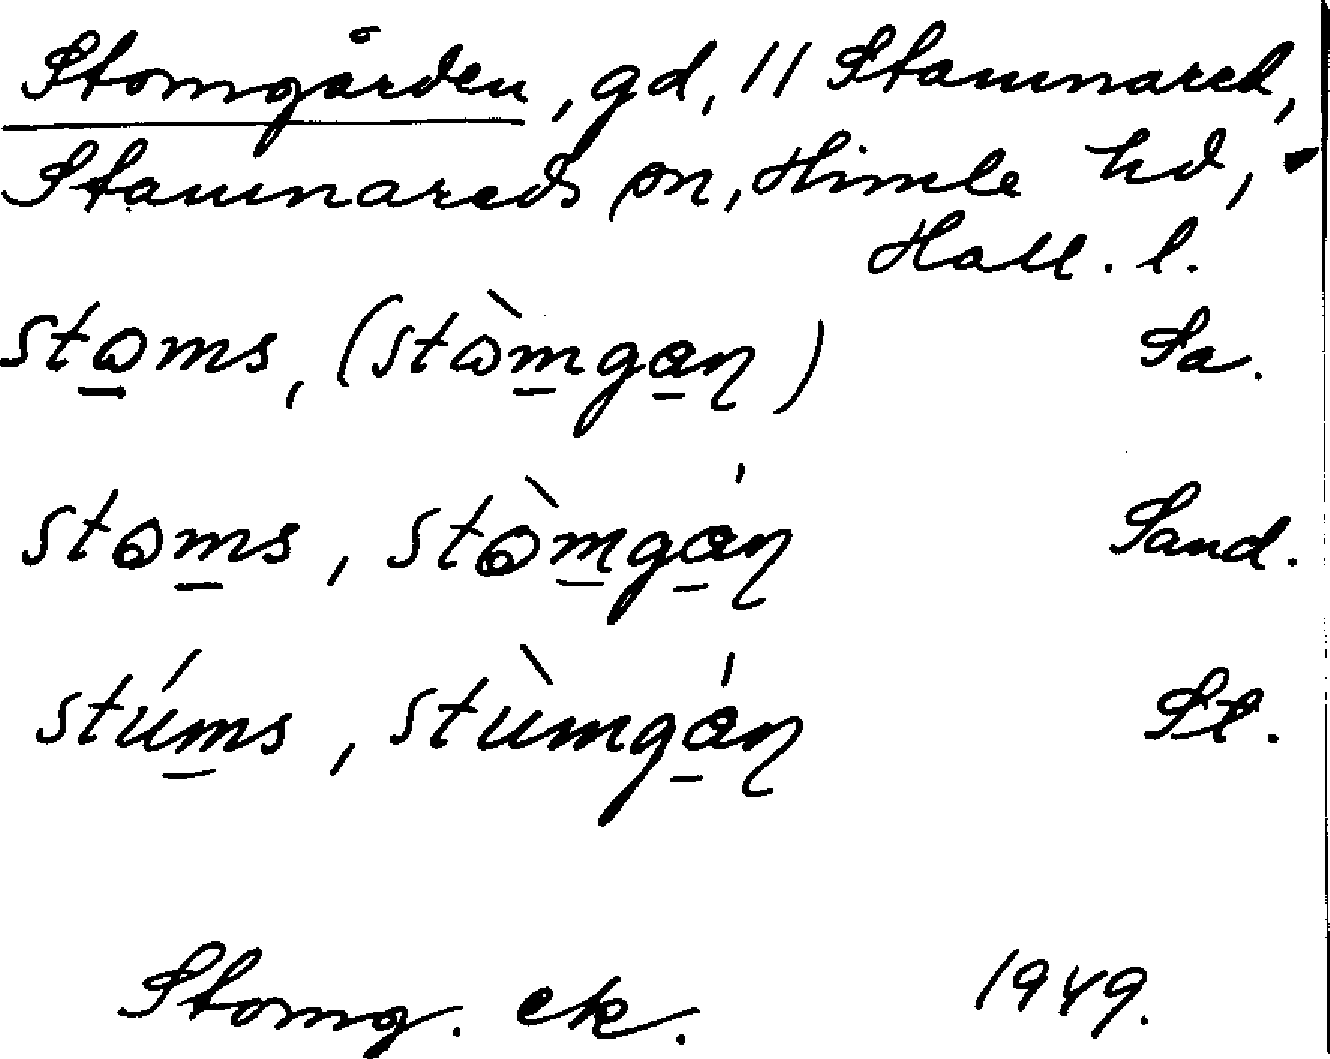 Stomgården, gd, 11 Stamnared,
Stamnareds sn, Himle hd,
Hall. l.
stɷms, (stɷ̀mgaɳ) Sa.
stɷms, stɷ̀mgáɳ Sand.
stúms, stùmgáɳ St.
Stomg. ek. 1949.